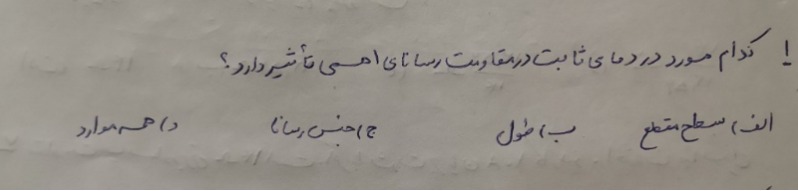 1 کدام مورد در دمای ثابت در مقاومت رسانای اهمی تأثیر دارد؟
الف) سطح مقطع ب) طول ج) جنس رسانا د) همه موارد